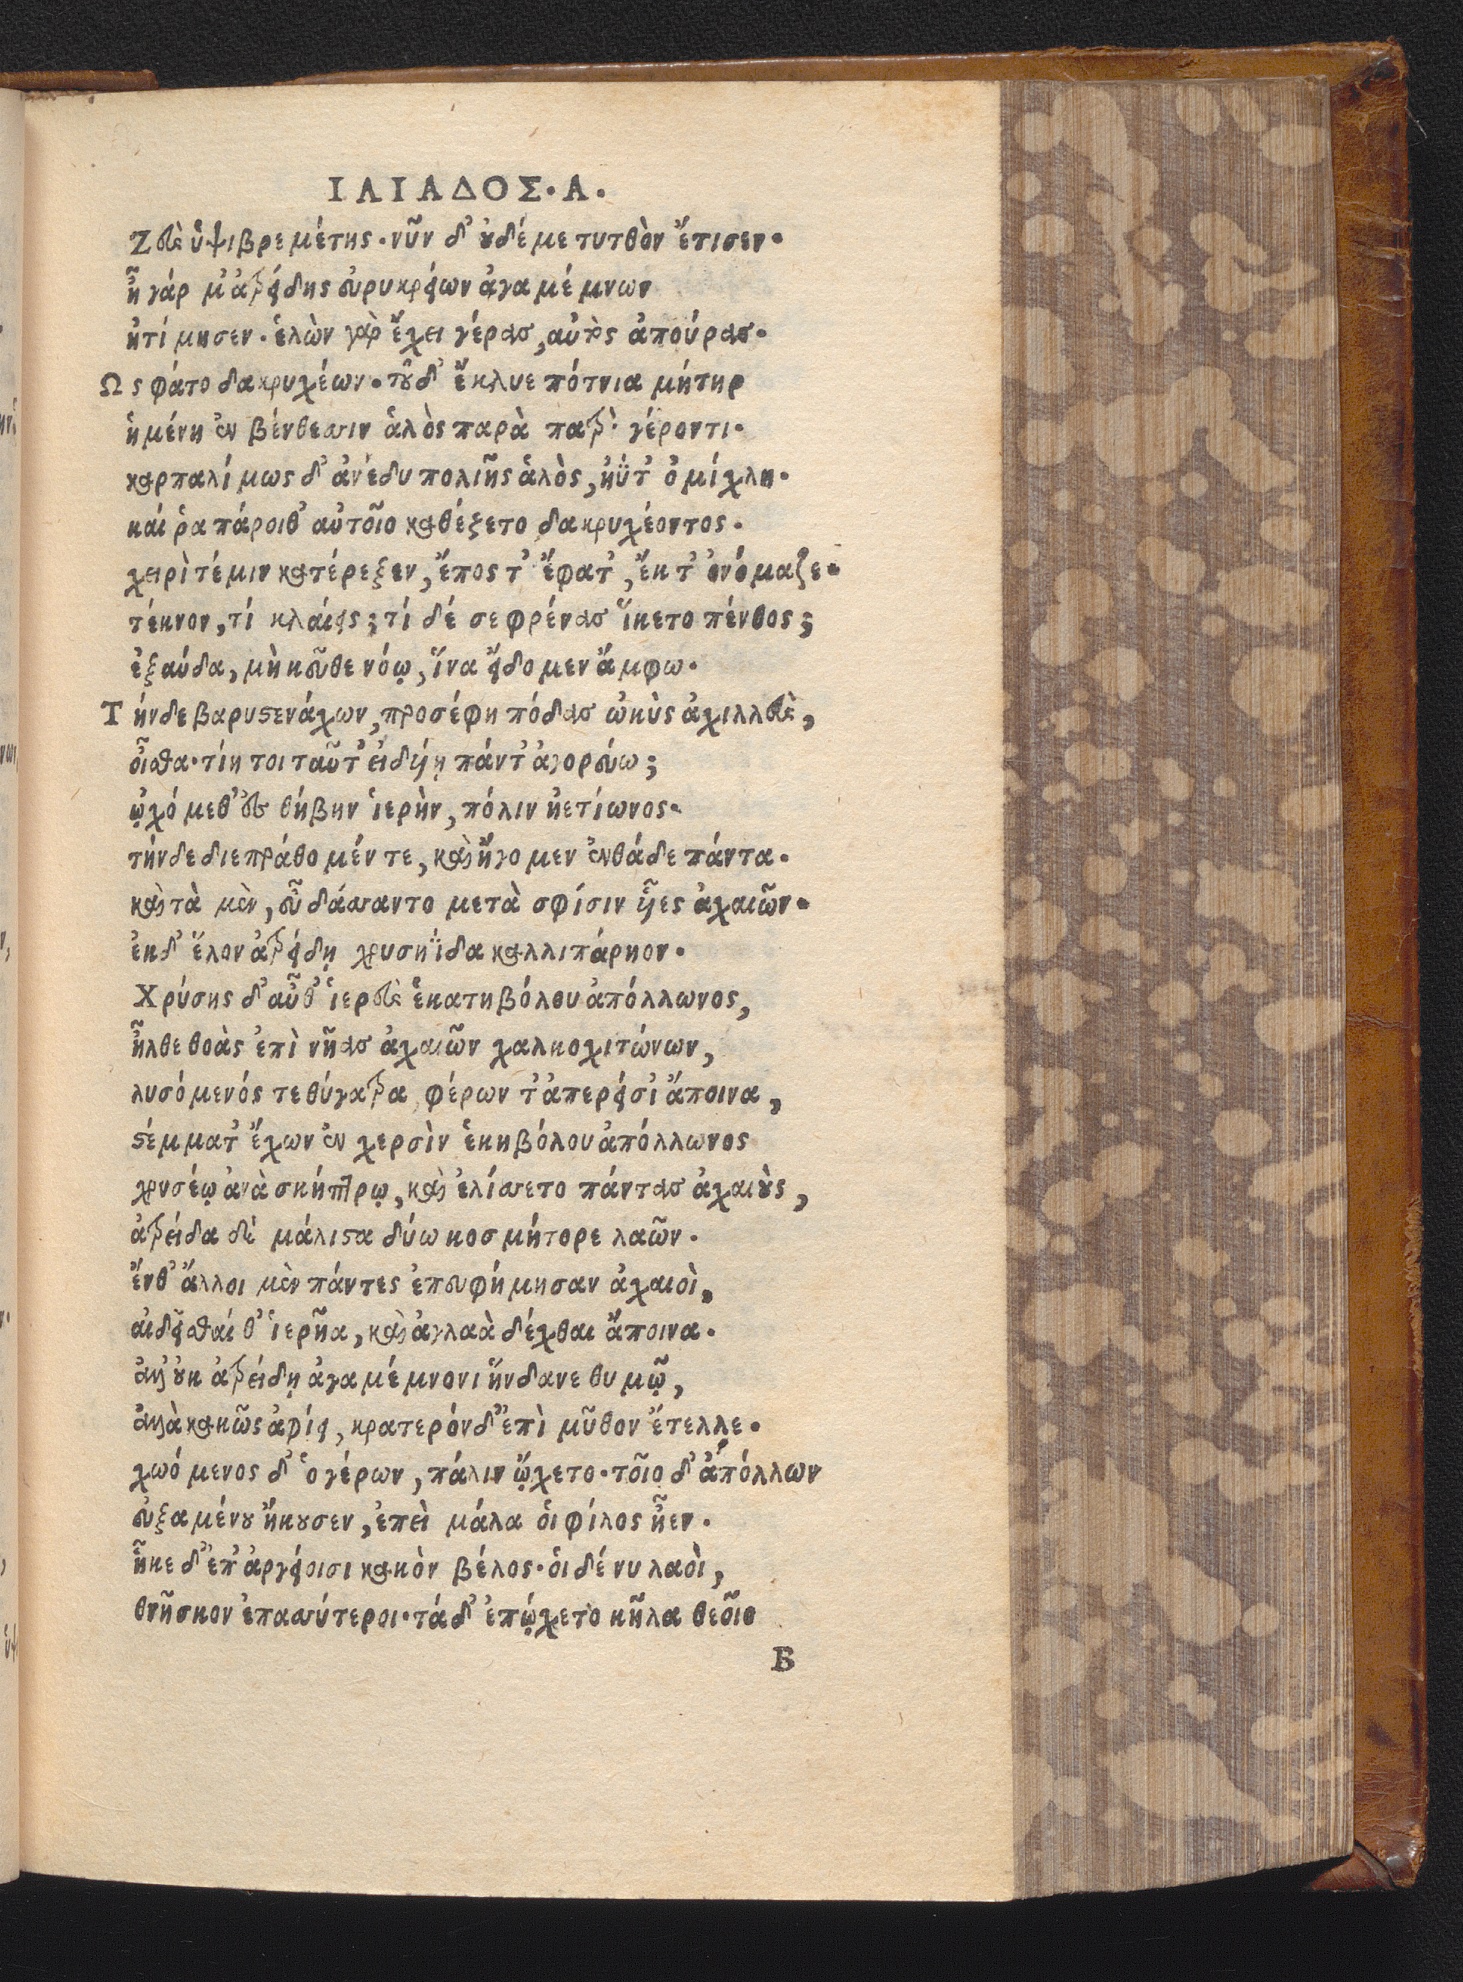 ΙΛΙΑΔΟΣ·Α·
Ζεὺς ὑψιβρεμέτης·νῦν δ' οὐδέ με τυτθὸν ἔτισεν·
ἦ γάρ μ' ἀτρείδης εὐρυκρείων ἀγαμέμνων
ἠτίμησεν·ἑλὼν γὰρ ἔχει γέρας, αὐτὸς ἀπούρας·
Ως φάτο δακρυχέων·τοῦ δ' ἔκλυε πότνια μήτηρ
ἡμένη ἐν βένθεσσιν ἁλὸς παρὰ πατρὶ γέροντι·
καρπαλίμως δ' ἀνέδυ πολιῆς ἁλὸς, ἠΰτ' ὀμίχλη·
καί ῥα πάροιθ' αὐτοῖο καθέζετο δακρυχέοντος·
χειρὶ τέ μιν κατέρεξεν, ἔπος τ' ἔφατ', ἔκ τ' ὀνόμαζε·
τέκνον, τί κλαίεις; τί δέ σε φρένας ἵκετο πένθος;
ἐξαύδα, μὴ κεῦθε νόῳ, ἵνα εἴδομεν ἄμφω·
Τ ήνδε βαρυστενάχων, προσέφη πόδας ὠκὺς ἀχιλλεὺς,
οἶσθα·τίη τοι ταῦτ' εἰδυίῃ πάντ' ἀγορεύω;
ᾠχόμεθ' ἐς θήβην ἱερὴν, πόλιν ἠετίωνος·
τήνδε διεπράθομέν τε, καὶ ἤγομεν ἐνθάδε πάντα·
καὶ τὰ μὲν, εὖ δάσσαντο μετὰ σφίσιν υἷες ἀχαιῶν·
ἐκ δ' ἕλον ἀτρείδῃ χρυσηΐδα καλλιπάρηον·
Χρύσης δ' αὖθ' ἱερεὺς ἑκατηβόλου ἀπόλλωνος,
ἦλθε θοὰς ἐπὶ νῆας ἀχαιῶν χαλκοχιτώνων,
λυσόμενός τε θύγατρα, φέρων τ' ἀπερείσι' ἄποινα,
στέμματ' ἔχων ἐν χερσὶν ἑκηβόλου ἀπόλλωνος
χρυσέῳ ἀνὰ σκήπτρῳ, καὶ ἐλίσσετο πάντας ἀχαιοὺς,
ἀτρείδα δὲ μάλιστα δύω κοσμήτορε λαῶν·
ἔνθ' ἄλλοι μὲν πάντες ἐπευφήμησαν ἀχαιοὶ,
αἰδεῖσθαί θ' ἱερῆα, καὶ ἀγλαὰ δέχθαι ἄποινα·
ἀλλ' οὐκ ἀτρείδῃ ἀγαμέμνονι ἥνδανε θυμῷ,
ἀλλὰ κακῶς ἀφίει, κρατερόν δ' ἐπὶ μῦθον ἔτελλε·
χωόμενος δ' ὁ γέρων, πάλιν ᾤχετο·τοῖο δ' ἀπόλλων
εὐξαμένου ἤκουσεν, ἐπεὶ μάλα οἱ φίλος ἦεν·
ἧκε δ' ἐπ' ἀργείοισι κακὸν βέλος·οἱ δέ νυ λαοὶ,
θνῆσκον ἐπασσύτεροι·τά δ' ἐπῴχετο κῆλα θεοῖο
Β